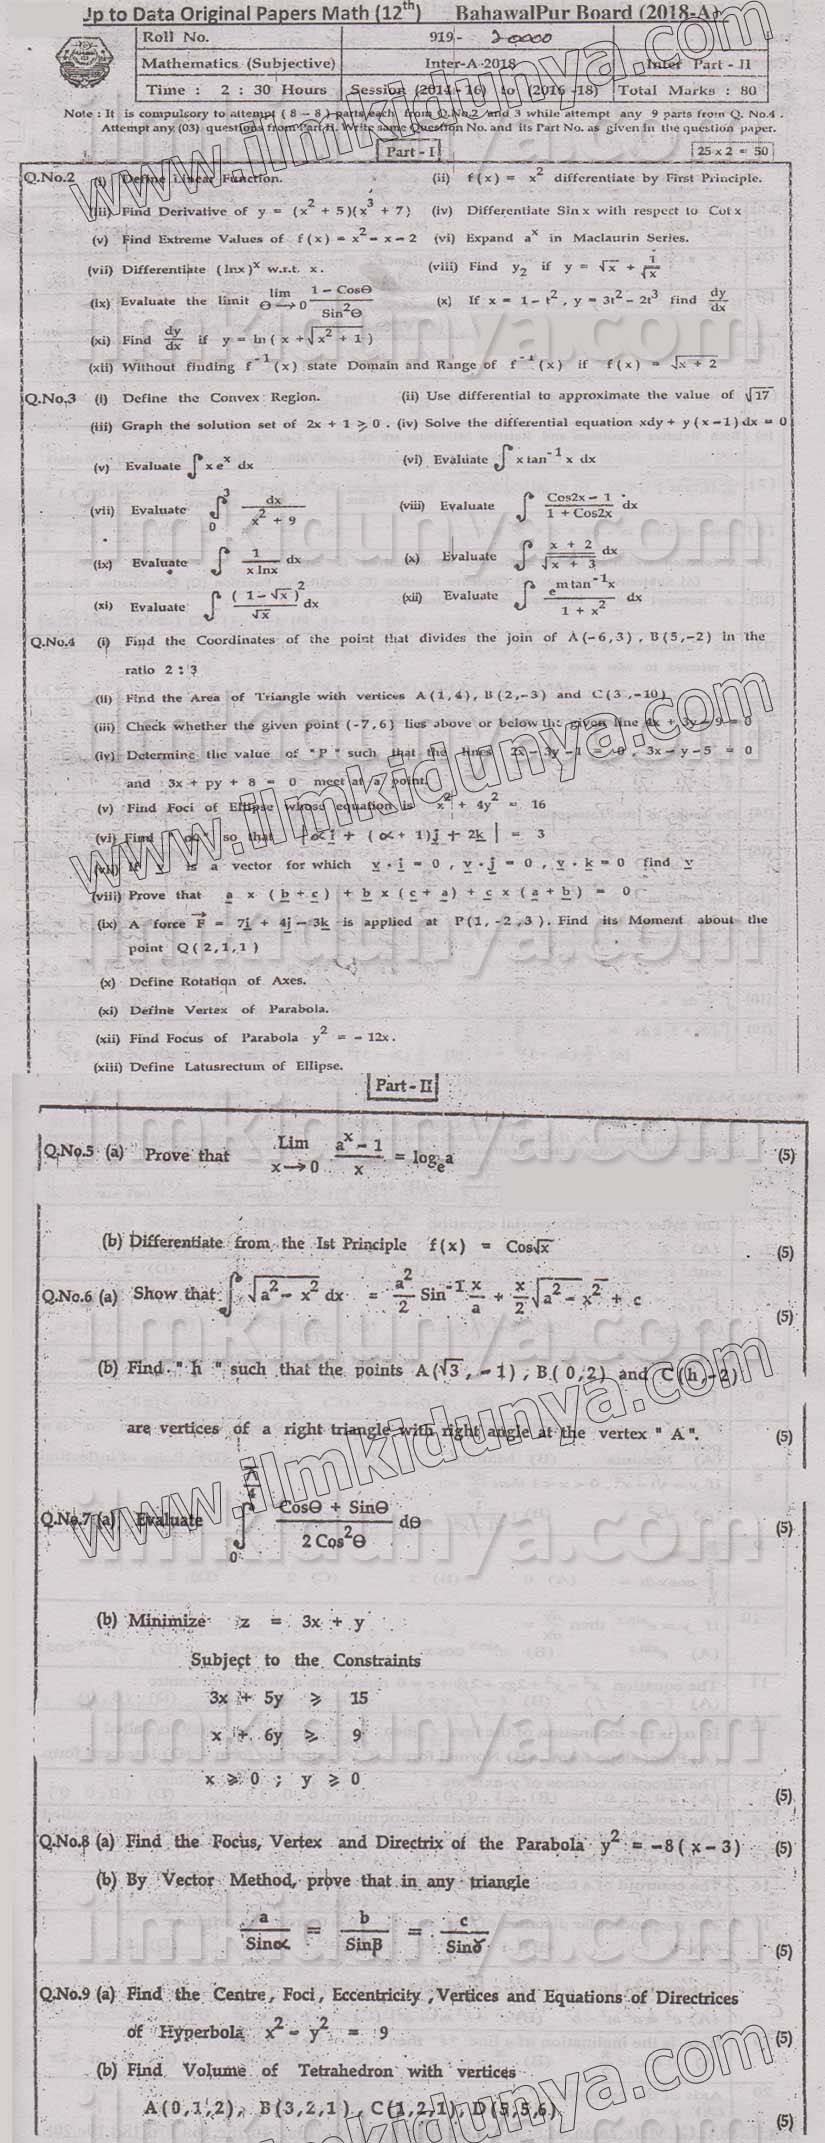 Jp to Data Original Papers Math (12th) BahawalPur Board (2018-A)
Roll No. 919- 20000
Mathematics (Subjective) Inter-A-2018 Inter Part - II
Time : 2 : 30 Hours Session (2014-16) to (2016-18) Total Marks : 80
Note : It is compulsory to attempt ( 8 - 8 ) parts each from Q.No.2 and 3 while attempt any 9 parts from Q. No.4 .
Attempt any (03) questions from Part-II. Write same Question No. and its Part No. as given in the question paper.
Part - I 25 x 2 = 50
Q.No.2 (i) Define Linear Function. (ii) f(x) = x² differentiate by First Principle.
(iii) Find Derivative of y = (x² + 5)(x³ + 7) (iv) Differentiate Sin x with respect to Cot x
(v) Find Extreme Values of f(x) = x² - x - 2 (vi) Expand aˣ in Maclaurin Series.
(vii) Differentiate (lnx)ˣ w.r.t. x . (viii) Find y₂ if y = √x + 1/√x
(ix) Evaluate the limit lim Θ→0 (1 - CosΘ)/Sin²Θ (x) If x = 1 - t² , y = 3t² - 2t³ find dy/dx
(xi) Find dy/dx if y = ln( x + √(x² + 1) )
(xii) Without finding f⁻¹(x) state Domain and Range of f⁻¹(x) if f(x) = √(x + 2)
Q.No.3 (i) Define the Convex Region. (ii) Use differential to approximate the value of √17
(iii) Graph the solution set of 2x + 1 ⩾ 0 . (iv) Solve the differential equation xdy + y(x-1)dx = 0
(v) Evaluate ∫ x eˣ dx (vi) Evaluate ∫ x tan⁻¹ x dx
(vii) Evaluate ∫₀³ dx/(x² + 9) (viii) Evaluate ∫ (Cos2x - 1)/(1 + Cos2x) dx
(ix) Evaluate ∫ 1/(x lnx) dx (x) Evaluate ∫ (x + 2)/√(x + 3) dx
(xi) Evaluate ∫ (1 - √x)²/√x dx (xii) Evaluate ∫ e^(m tan⁻¹x)/(1 + x²) dx
Q.No.4 (i) Find the Coordinates of the point that divides the join of A(-6,3) , B(5,-2) in the
ratio 2 : 3
(ii) Find the Area of Triangle with vertices A(1,4), B(2,-3) and C(3,-10)
(iii) Check whether the given point (-7,6) lies above or below the given line 4x + 3y - 9 = 0
(iv) Determine the value of "P" such that the lines 2x - 3y - 1 = 0 , 3x - y - 5 = 0
and 3x + py + 8 = 0 meet at a point.
(v) Find Foci of Ellipse whose equation is x² + 4y² = 16
(vi) Find "α" so that | αi + (α+1)j + 2k | = 3
(vii) If v is a vector for which v . i = 0 , v . j = 0 , v . k = 0 find v
(viii) Prove that a x (b + c) + b x (c + a) + c x (a + b) = 0
(ix) A force F = 7i + 4j - 3k is applied at P(1,-2,3). Find its Moment about the
point Q(2,1,1)
(x) Define Rotation of Axes.
(xi) Define Vertex of Parabola.
(xii) Find Focus of Parabola y² = -12x .
(xiii) Define Latusrectum of Ellipse.
Part - II
Q.No.5 (a) Prove that Lim x→0 (aˣ - 1)/x = logₑa (5)
(b) Differentiate from the Ist Principle f(x) = Cos√x (5)
Q.No.6 (a) Show that ∫ √(a² - x²) dx = a²/2 Sin⁻¹ x/a + x/2 √(a² - x²) + c (5)
(b) Find " h " such that the points A(√3, -1), B(0,2) and C(h,-2)
are vertices of a right triangle with right angle at the vertex " A ". (5)
Q.No.7 (a) Evaluate ∫₀^(π/4) (CosΘ + SinΘ)/(2 Cos²Θ) dΘ (5)
(b) Minimize z = 3x + y
Subject to the Constraints
3x + 5y ⩾ 15
x + 6y ⩾ 9
x ⩾ 0 ; y ⩾ 0 (5)
Q.No.8 (a) Find the Focus, Vertex and Directrix of the Parabola y² = -8(x-3) (5)
(b) By Vector Method, prove that in any triangle
a/Sinα = b/Sinβ = c/Sinγ (5)
Q.No.9 (a) Find the Centre, Foci, Eccentricity, Vertices and Equations of Directrices
of Hyperbola x² - y² = 9 (5)
(b) Find Volume of Tetrahedron with vertices
A(0,1,2), B(3,2,1), C(1,2,1), D(5,5,6) (5)
www.ilmkidunya.com
ilmkidunya.com